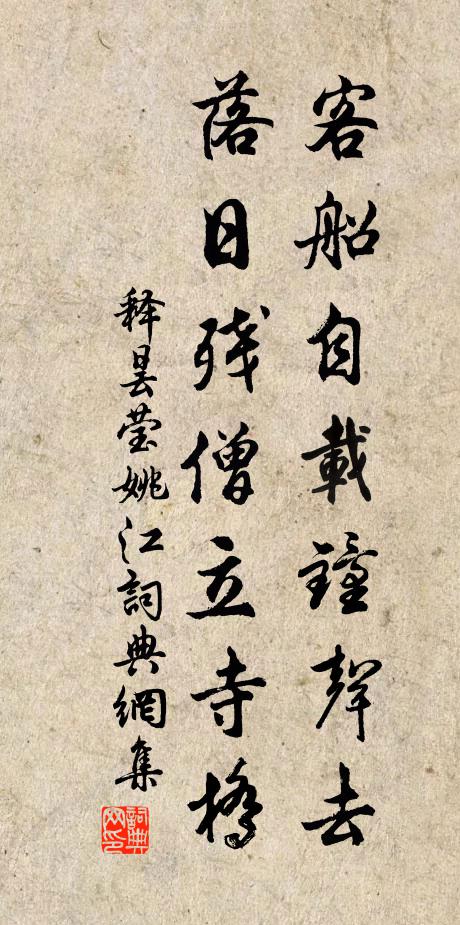 客船自載鐘聲去
落日殘僧立寺橋
释昙莹姚江詞典網集
詞典网印